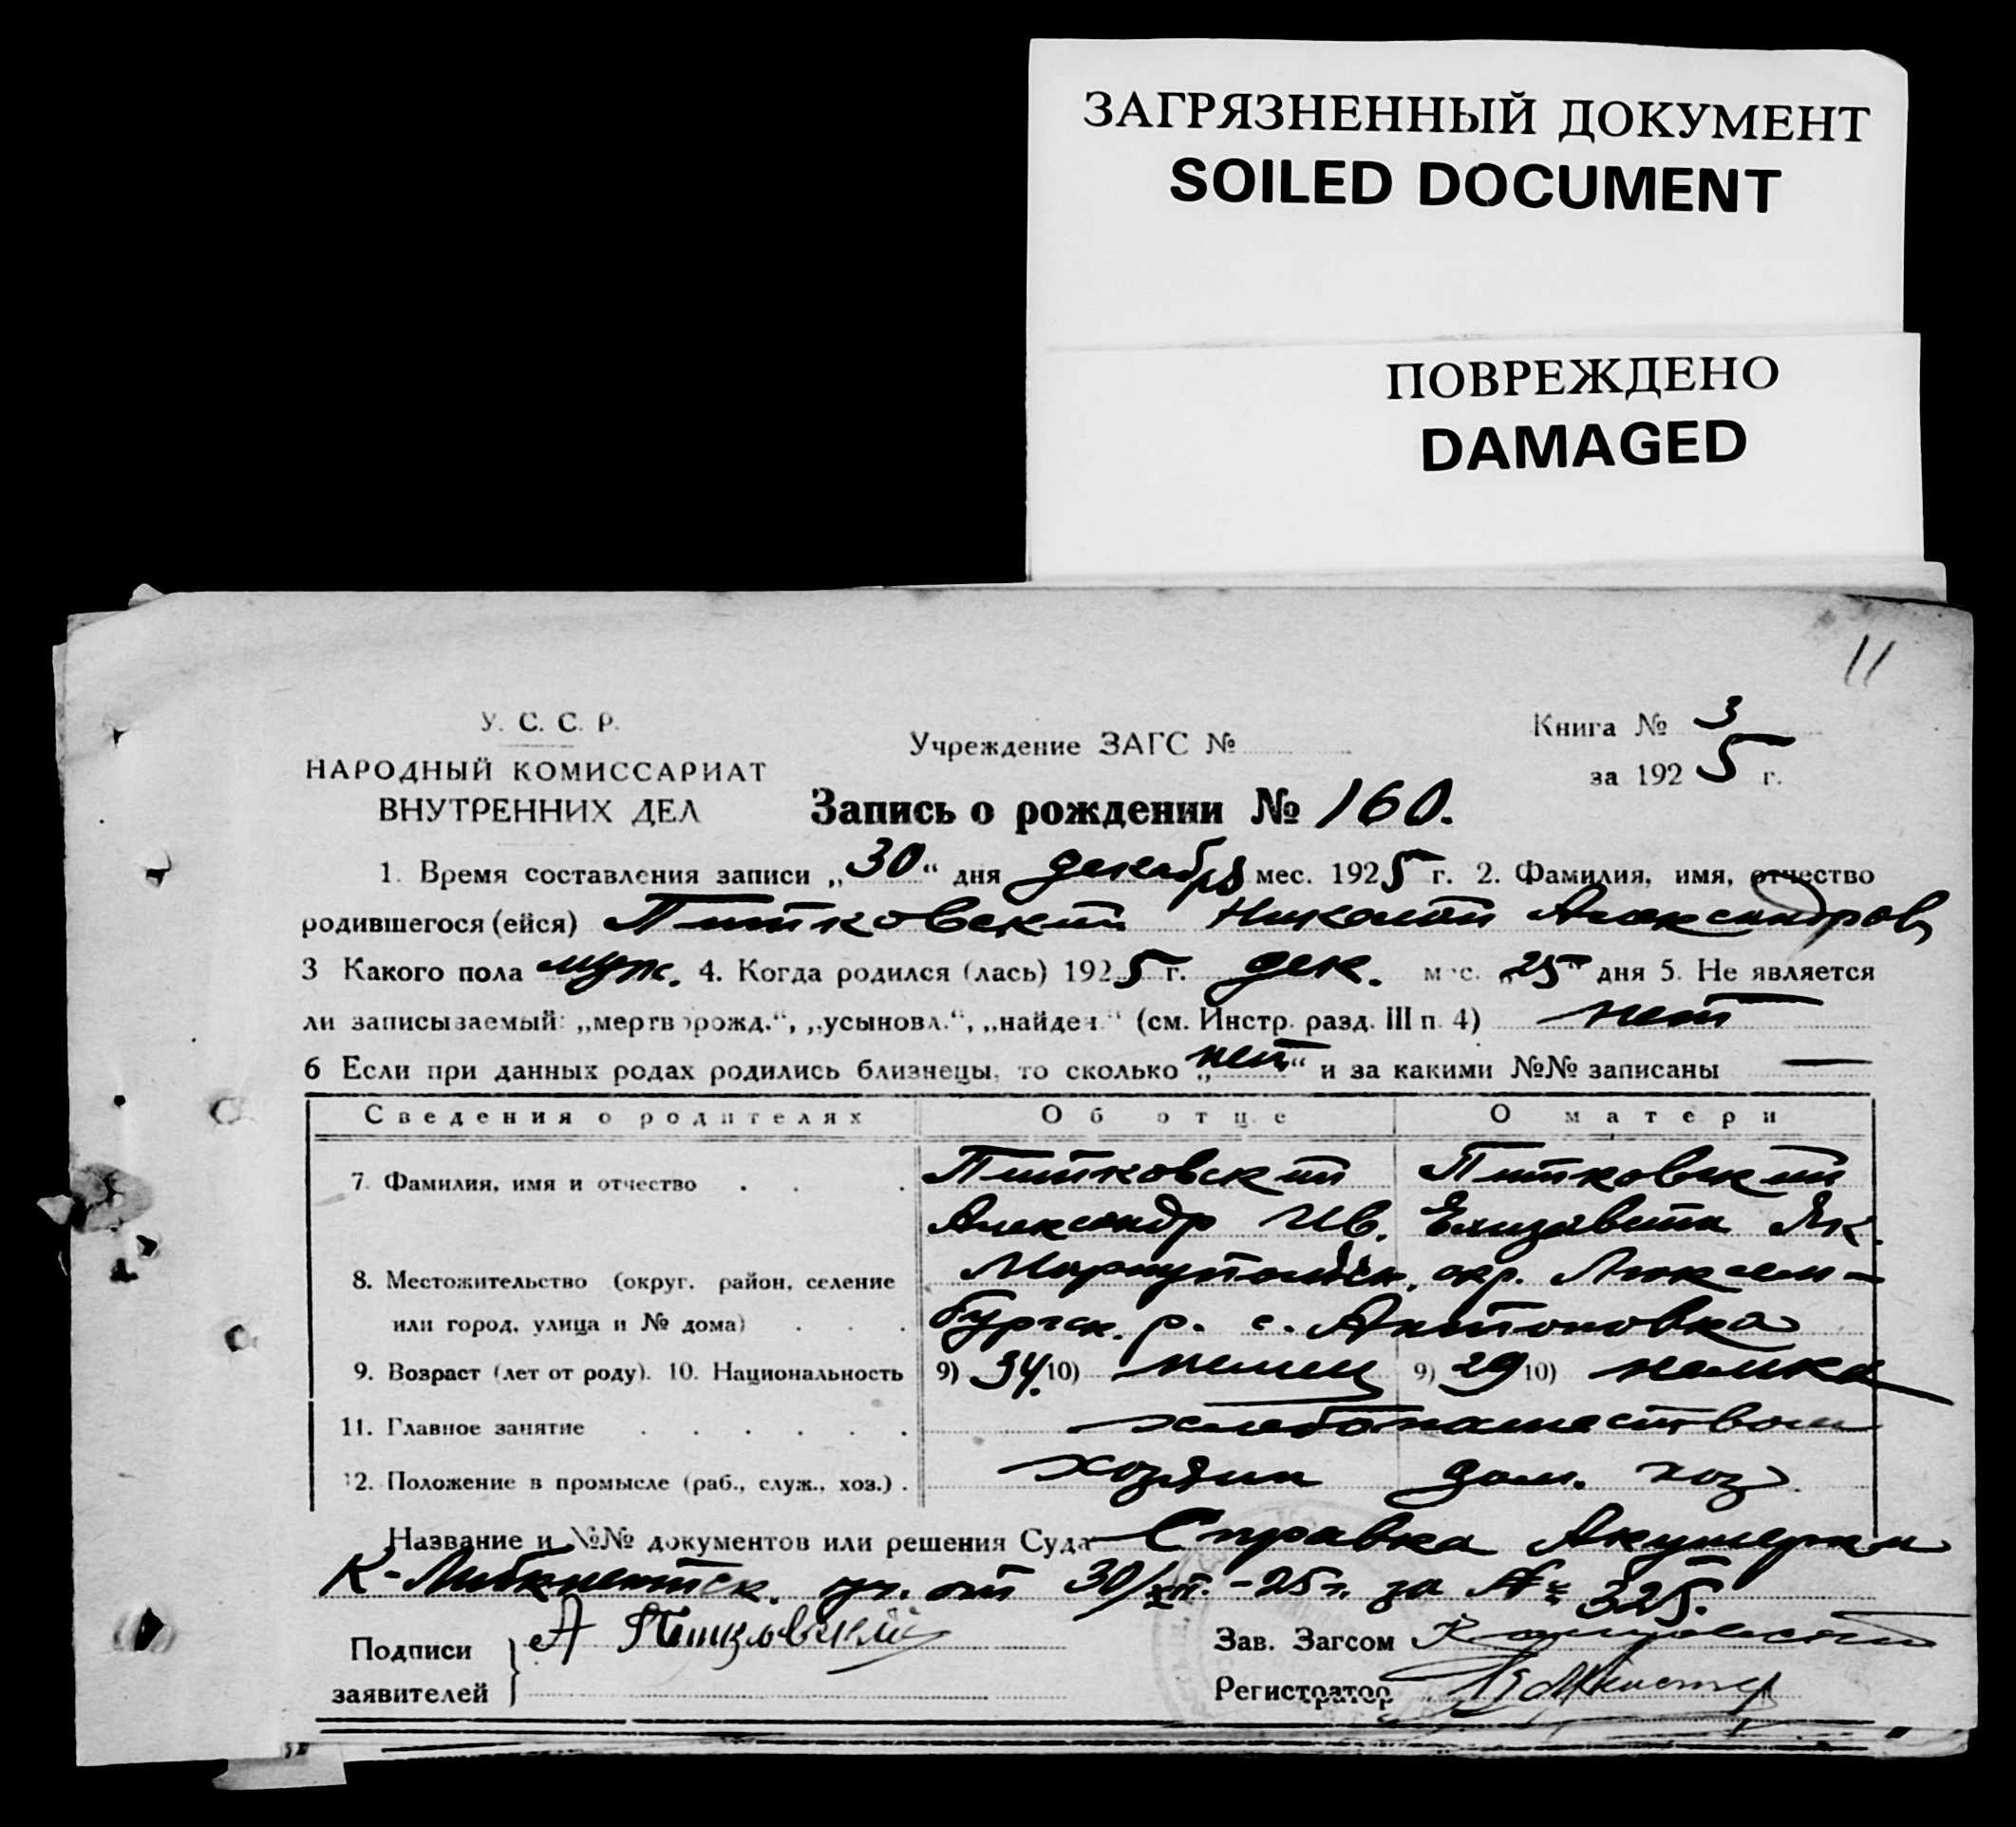 ЗАГРЯЗНЕННЫЙ ДОКУМЕНТ
SOILED DOCUMENT
ПОВРЕЖДЕНО
DAMAGED
11
У. С. С. Р.
НАРОДНЫЙ КОМИССАРИАТ
ВНУТРЕННИХ ДЕЛ
Учреждение ЗАГС №
Книга № 3
за 1925 г.
Запись о рождении № 160.
1. Время составления записи „30“ дня декабря мес. 1925 г. 2. Фамилия, имя, отчество
родившегося (ейся) Питковский Николай Александров
3 Какого пола муж. 4. Когда родился (лась) 1925 г. дек. мес. „25“ дня 5. Не является
ли записываемый: „мертворожд.“, „усыновл.“, „найден.“ (см. Инстр. разд. III п. 4) нет
6 Если при данных родах родились близнецы, то сколько „нет“ и за какими №№ записаны —
Сведения о родителях Об отце О матери
7. Фамилия, имя и отчество . . . Питковский Питковский
Александр Ив. Елизавета Як.
8. Местожительство (округ, район, селение Мариупольск. окр. Люксем-
или город, улица и № дома) . . . бургск. р. с. Антоновка
9. Возраст (лет от роду). 10. Национальность 9) 34. 10) немец 9) 29 10) немка
11. Главное занятие . . . . . . хлебопашеством
12. Положение в промысле (раб., служ., хоз.) . хозяин дом. хоз
Название и №№ документов или решения Суда Справка Акушерки
К-Либкнетск. уч. от 30/XII. -25 г. за № 325.
Подписи
заявителей
А Питковский
Зав. Загсом
Регистратор